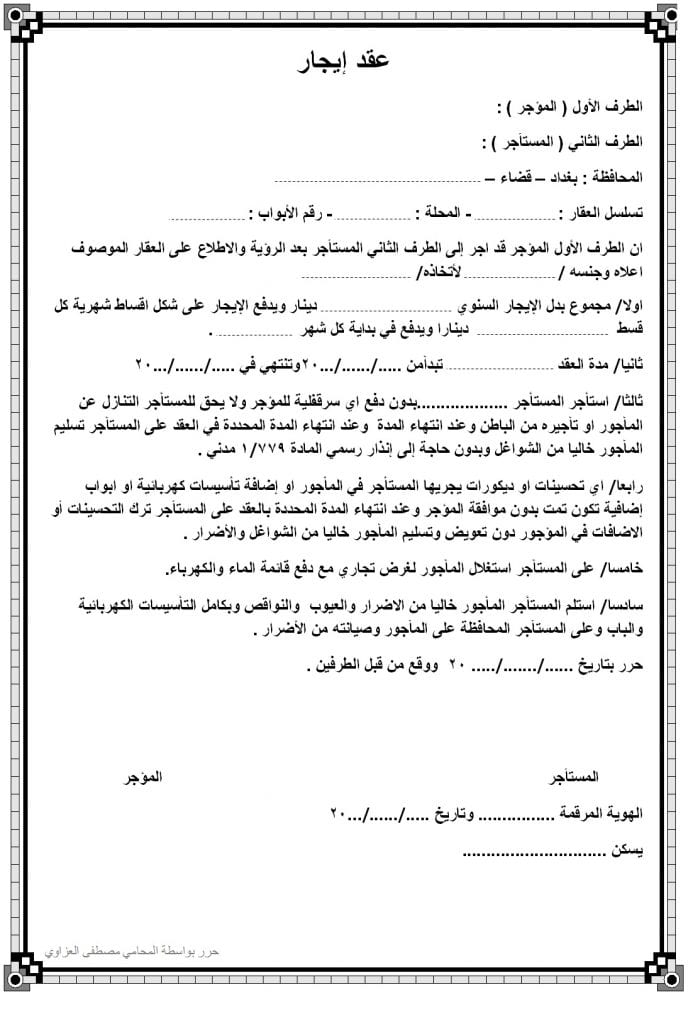 عقد إيجار
الطرف الأول ( المؤجر ) :
الطرف الثاني ( المستأجر ) :
المحافظة : بغداد – قضاء – ........................
تسلسل العقار : .............. - المحلة : ............. - رقم الأبواب : .............
ان الطرف الأول المؤجر قد اجر إلى الطرف الثاني المستأجر بعد الرؤية والاطلاع على العقار الموصوف
اعلاه وجنسه / ................ لأتخاذه/ ...................
اولا/ مجموع بدل الإيجار السنوي ...................... دينار ويدفع الإيجار على شكل اقساط شهرية كل
قسط ...................... دينارا ويدفع في بداية كل شهر .............. .
ثانيا/ مدة العقد .................. تبدأمن ...../....../...٢٠وتنتهي في ...../....../...٢٠
ثالثا/ استأجر المستأجر ...................بدون دفع اي سرقفلية للمؤجر ولا يحق للمستأجر التنازل عن
المأجور او تأجيره من الباطن وعند انتهاء المدة وعند انتهاء المدة المحددة في العقد على المستأجر تسليم
المأجور خاليا من الشواغل وبدون حاجة إلى إنذار رسمي المادة ١/٧٧٩ مدني .
رابعا/ اي تحسينات او ديكورات يجريها المستأجر في المأجور او إضافة تأسيسات كهربائية او ابواب
إضافية تكون تمت بدون موافقة المؤجر وعند انتهاء المدة المحددة بالعقد على المستأجر ترك التحسينات أو
الاضافات في المؤجور دون تعويض وتسليم المأجور خاليا من الشواغل والأضرار .
خامسا/ على المستأجر استغلال المأجور لغرض تجاري مع دفع قائمة الماء والكهرباء.
سادسا/ استلم المستأجر المأجور خاليا من الاضرار والعيوب والنواقص وبكامل التأسيسات الكهربائية
والباب وعلى المستأجر المحافظة على المأجور وصيانته من الأضرار .
حرر بتاريخ ....../......./..... ٢٠ ووقع من قبل الطرفين .
المستأجر المؤجر
الهوية المرقمة ................ وتاريخ ...../....../...٢٠
يسكن ..............................
حرر بواسطة المحامي مصطفى العزاوي